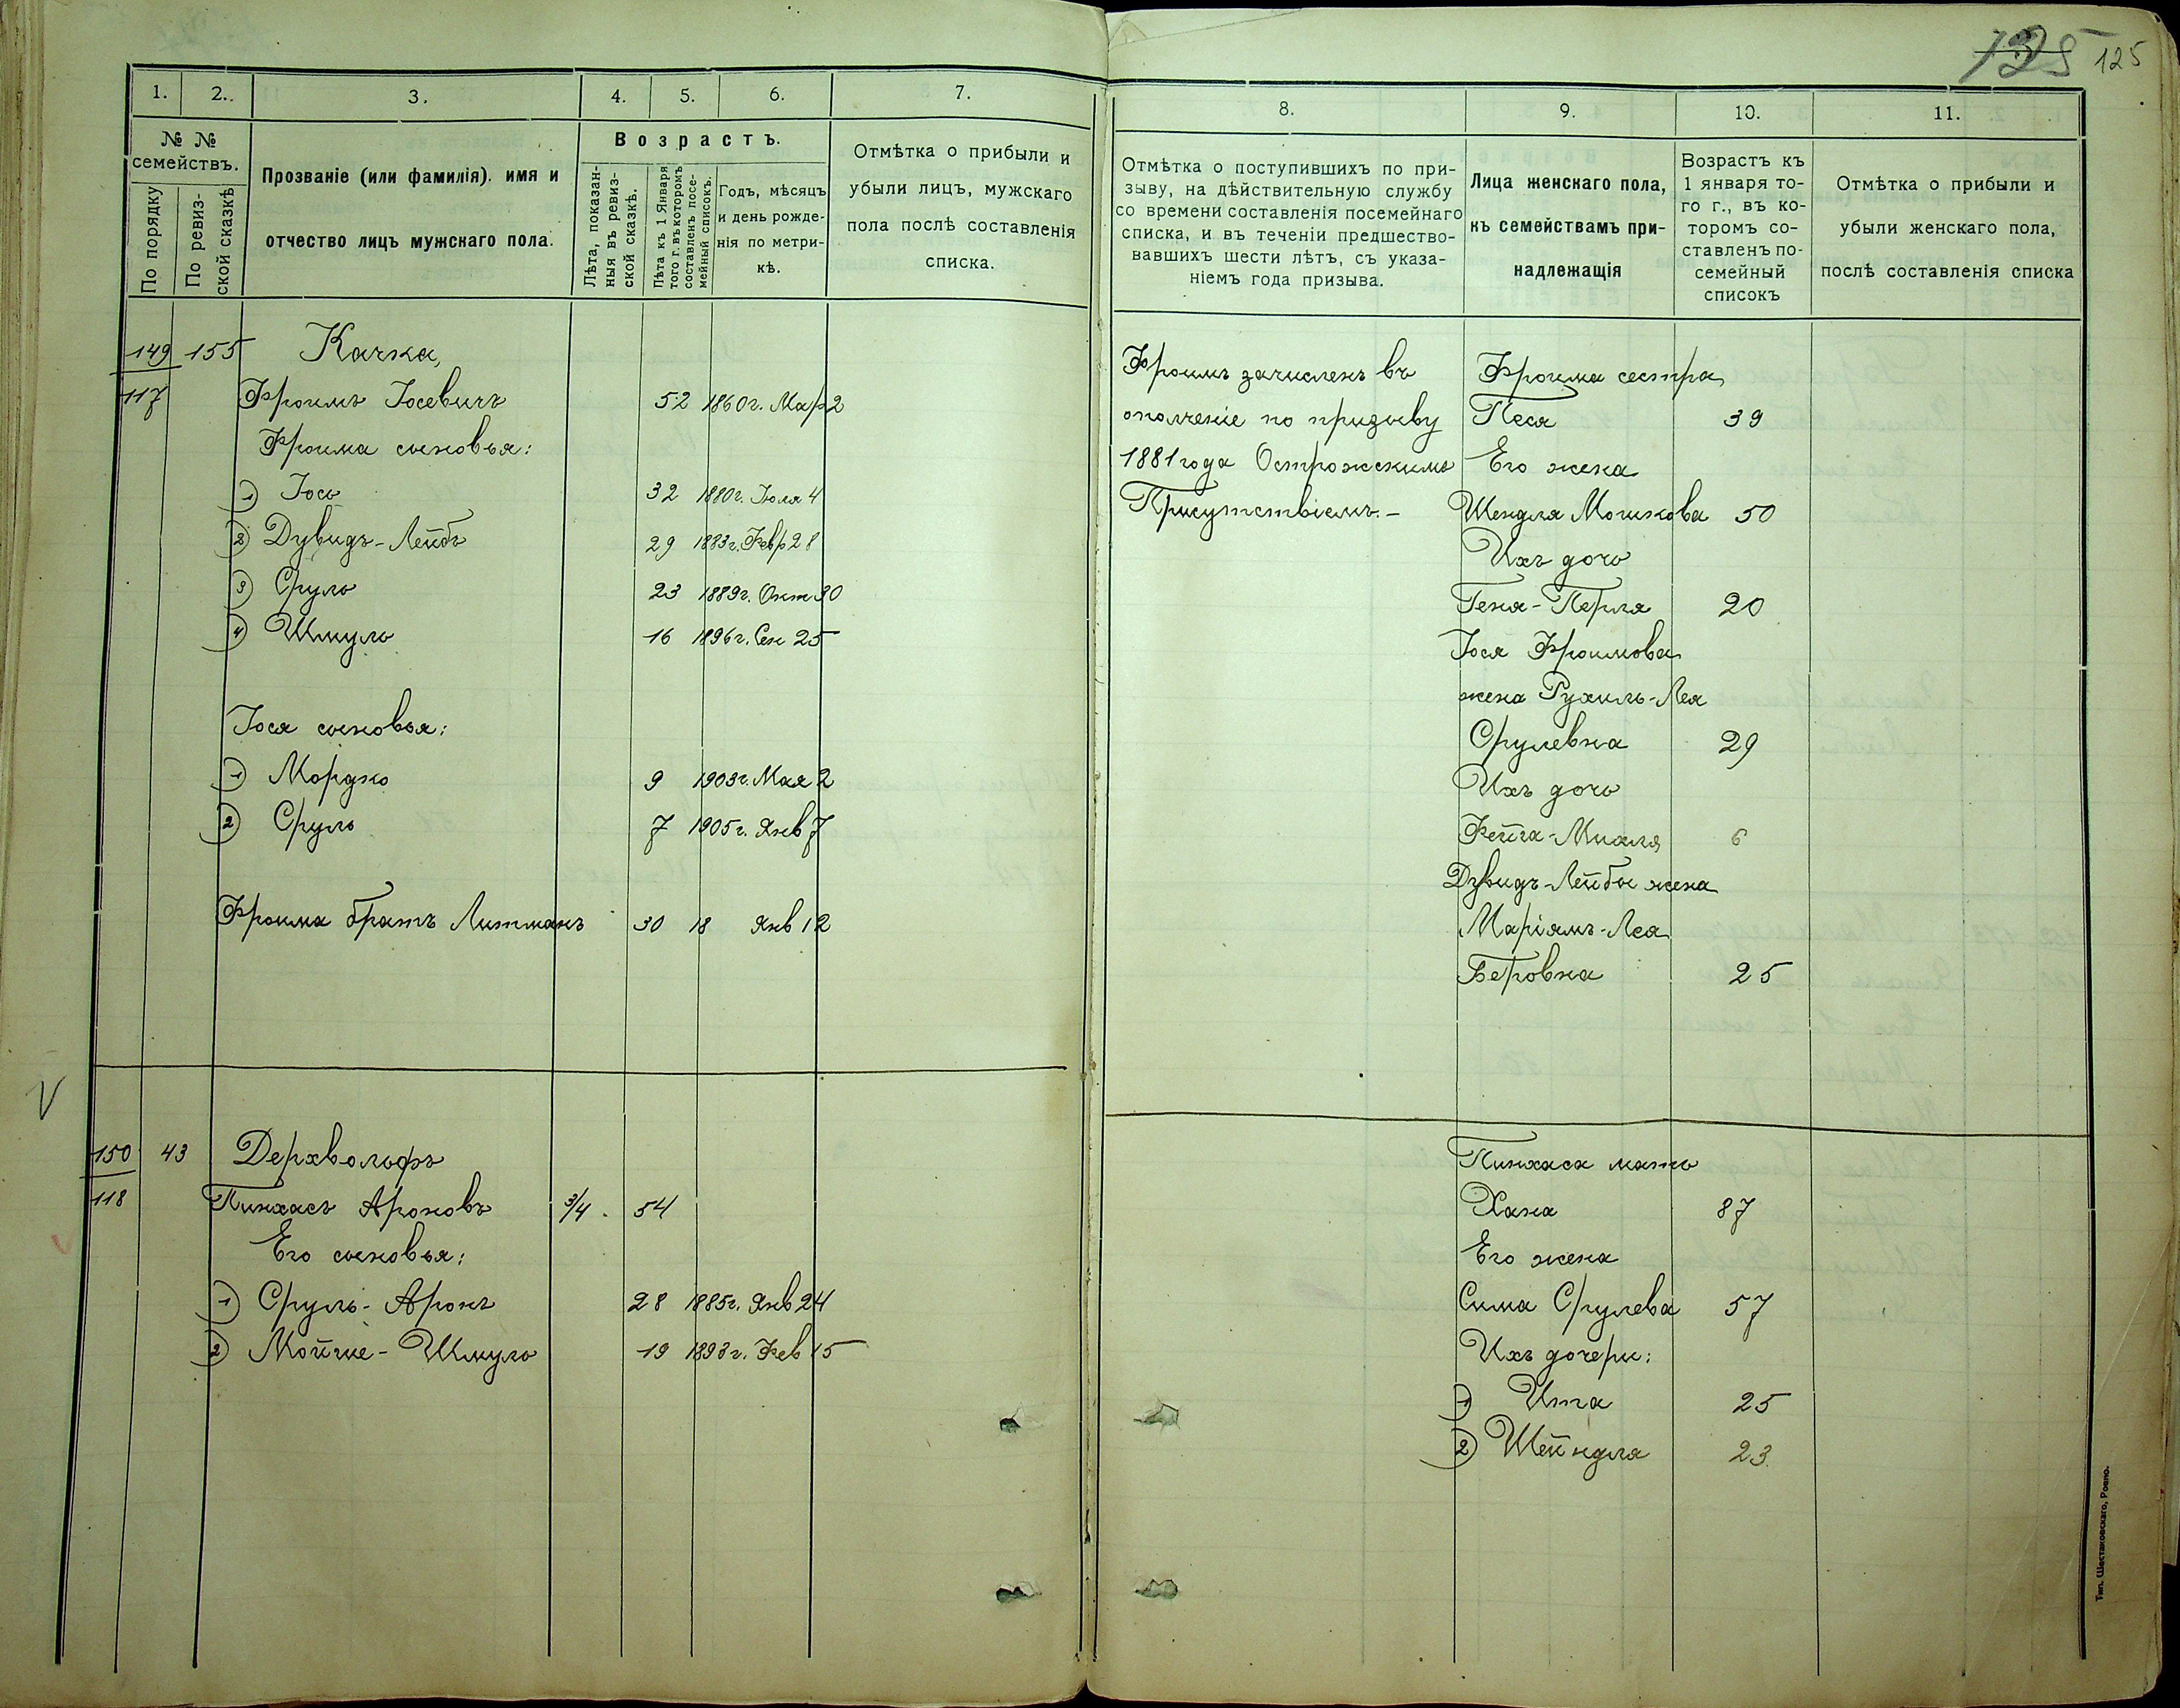 125
1. 2. 3. 4. 5. 6. 7.
№ № семействъ.
По порядку
По ревизской сказкѣ
Прозваніе (или фамилія). имя и
отчество лицъ мужскаго пола.
Возрастъ.
Лѣта, показанныя въ ревизской сказкѣ.
Лѣта къ 1 Января того г. въ которомъ составленъ посемейный списокъ.
Годъ, мѣсяцъ
и день рожде-
нія по метри-
кѣ.
Отмѣтка о прибыли и
убыли лицъ, мужскаго
пола послѣ составленія
списка.
149 155 Качка,
117 Фроимъ Іосевичъ 52 1860г. Мар 2
Фроима сыновья:
1) Іось 32 1880г. Іюля 4
2) Дувидъ-Лейбъ 29 1883г. Февр 28
3) Сруль 23 1889г. Окт 30
4) Шмуль 16 1896г. Сен 25
Іося сыновья:
1) Мордко 9 1903г. Мая 2
2) Сруль 7 1905г. Янв 7
Фроима братъ Литманъ 30 18 Янв 12
150 43 Дерхвольфъ
118 Пинхасъ Ароновъ 3/4 54
Его сыновья:
1) Сруль-Аронъ 28 1885г. Янв 24
2) Мойше-Шмуль 19 1893г. Фев 15
8. 9. 10. 11.
Отмѣтка о поступившихъ по при-
зыву, на дѣйствительную службу
со времени составленія посемейнаго
списка, и въ теченіи предшество-
вавшихъ шести лѣтъ, съ указа-
ніемъ года призыва.
Лица женскаго пола,
къ семействамъ при-
надлежащія
Возрастъ къ
1 января то-
го г., въ ко-
торомъ со-
ставленъ по-
семейный
списокъ
Отмѣтка о прибыли и
убыли женскаго пола,
послѣ составленія списка
Фроимъ зачисленъ въ
ополченіе по призыву
1881 года Острожскимъ
Присутствіемъ.-
Фроима сестра
Песя 39
Его жена
Шендля Мошкова 50
Ихъ дочь
Геня-Перля 20
Іося Фроимова
жена Рухиль-Лея
Срулевна 29
Ихъ дочь
Фейга-Михля 6
Дувидъ-Лейбы жена
Маріямъ-Лея
Беровна 25
Пинхаса мать
Хана 87
Его жена
Сима Срулева 57
Ихъ дочери:
1) Ита 25
2) Шейндля 23
Тип. Шестаковскаго, Ровно.